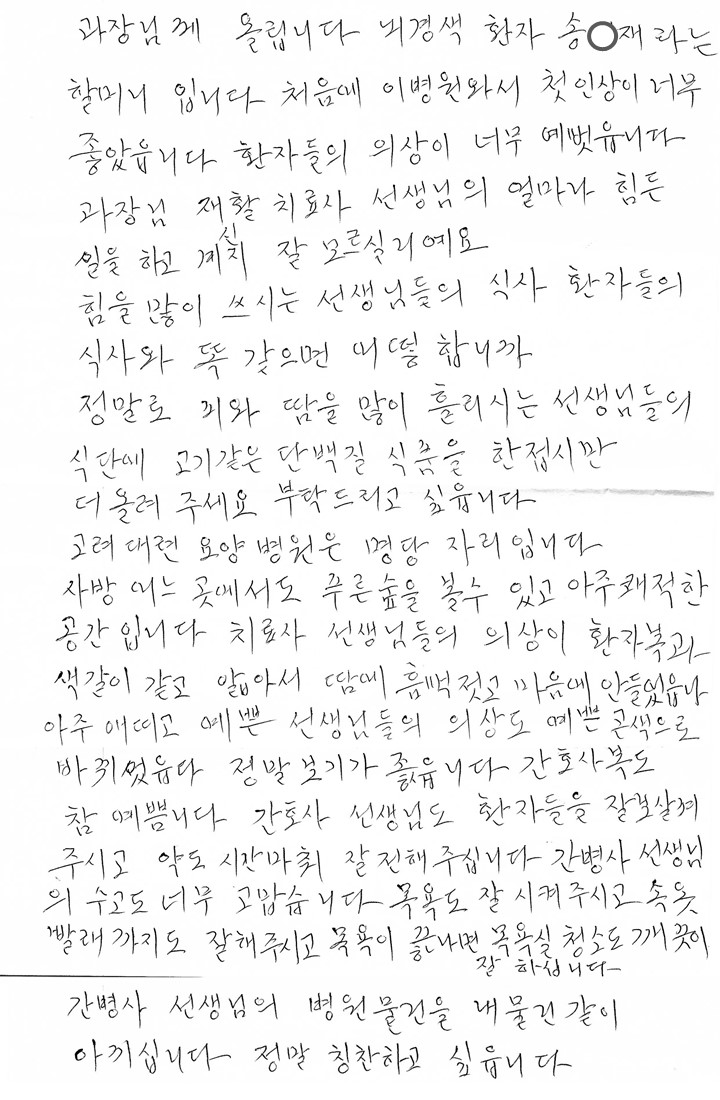 과장님께 올립니다 뇌경색 환자 송○재라는
할머니 입니다 처음에 이병원와서 첫인상이 너무
좋았읍니다 환자들의 의상이 너무 예벗읍니다
과장님 재활 치료사 선생님의 얼마나 힘든
일을 하고 계신치 잘 모르실리예요
힘을 많이 쓰시는 선생님들의 식사 환자들의
식사와 똑 갖으면 어떻 합니까
정말로 피와 땀을 많이 흘리시는 선생님들의
식단에 고기같은 단백질 식품을 한접시만
더 올려 주세요 부탁드리고 싶읍니다
고려 대련 요양 병원은 명당 자리 입니다
사방 어느 곳에서도 푸른숲을 볼수 있고 아주쾌적한
공간 입니다 치료사 선생님들의 의상이 환자복과
색갈이 같고 얇아서 땀에 흠뻑젓고 마음에 안들었읍니다
아주 애띠고 예쁜 선생님들의 의상도 예쁜 곤색으로
바뀌었읍다 정말 보기가 좋았읍니다 간호사복도
참 예쁩니다 간호사 선생님도 환자들을 잘보살펴
주시고 약도 시간마춰 잘 전해 주십니다 간병사 선생님
의 수고도 너무 고맙습니다 목욕도 잘 시켜주시고 속옷
빨래 까지도 잘해주시고 목욕이 끝나면 목욕실 청소도 깨끗이
잘 하십니다
간병사 선생님의 병원물건을 내물건 같이
아끼십니다 정말 칭찬하고 싶읍니다